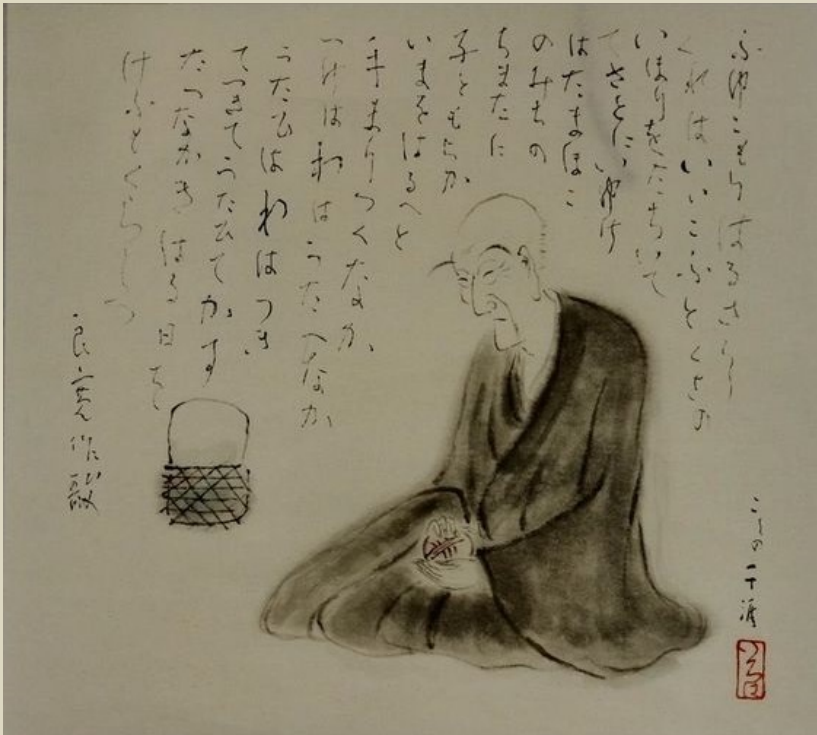 ふゆこもりはるさり
くれはいいこふとくさの
いほりをたちいて
てさとにいゆけ
はたまほこ
のみちの
ちまたに
子ともらか
いまをはるへと
手まりつくなか
つけはわはうたひなか
うたへはわはつき
てつきてうたひてかす
みたつなかきはる日を
けふもくらしつ
良寛作歌